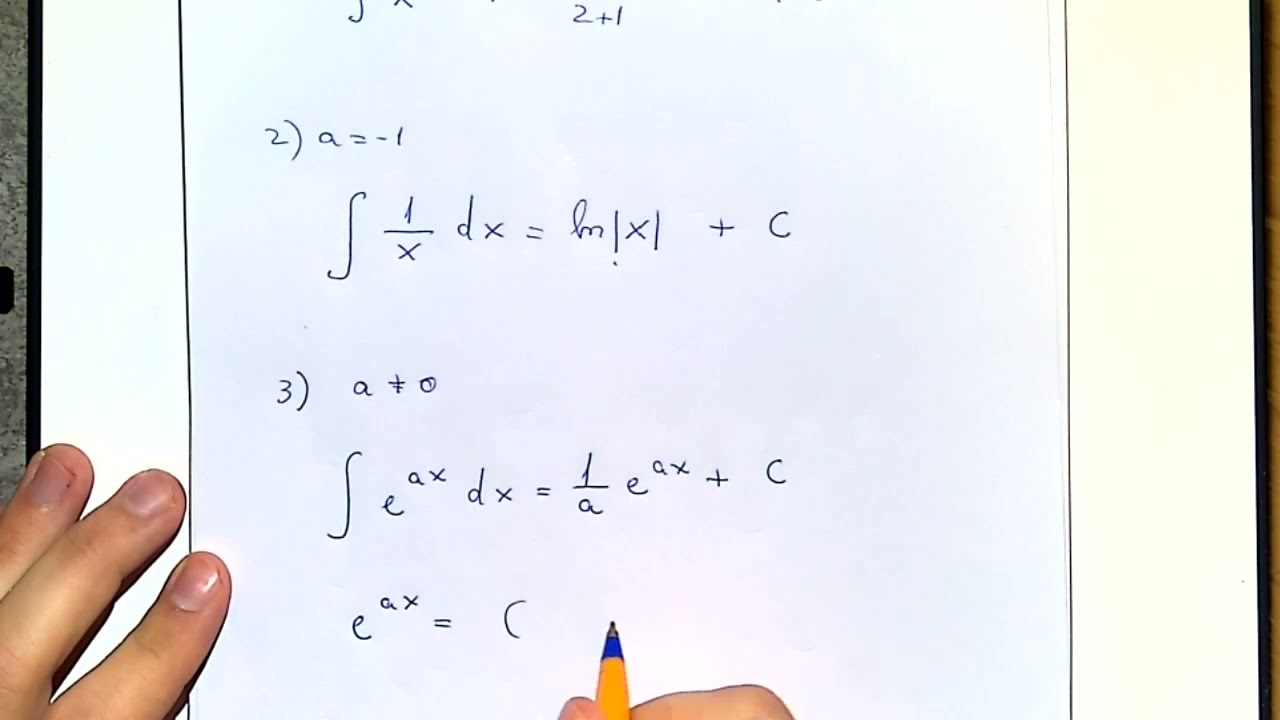 ∫ x 2+1
2) a = -1
∫ 1/x dx = ln|x| + C
3) a ≠ 0
∫ e^{ax} dx = 1/a e^{ax} + C
e^{ax} = (